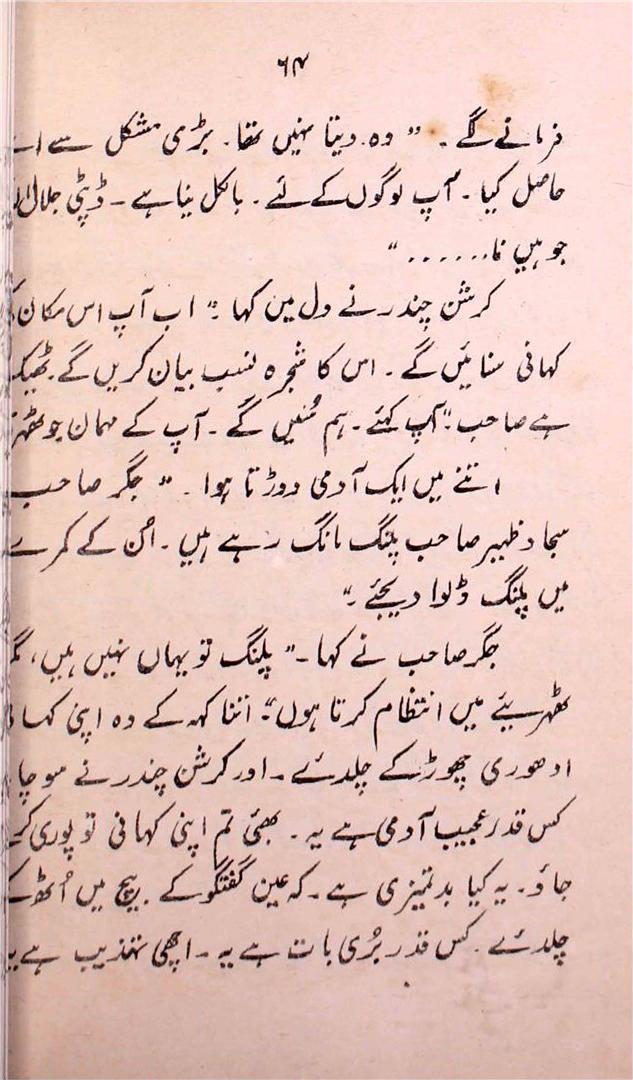 ۶۴
فرمانے لگے۔ " وہ دیتا نہیں تھا۔ بڑی مشکل سے
حاصل کیا۔ آپ لوگوں کے لئے۔ بالکل نیا ہے۔ ڈپٹی جلال
جو ہیں نا۔۔۔۔۔۔ "
کرشن چندر نے دل میں کہا۔ " اب آپ اس مکان
کہانی سنائیں گے۔ اس کا شجرہ نسب بیان کریں گے۔ ٹھیک
ہے صاحب۔" آپ کہئے۔ ہم سُنیں گے۔ آپ کے مہمان جو
اتنے میں ایک آدمی دوڑتا ہوا۔ " جگر صاحب
سجاد ظہیر صاحب پلنگ مانگ رہے ہیں۔ اُن کے کمرے
میں پلنگ ڈلوا دیجئے۔"
جگر صاحب نے کہا۔" پلنگ تو یہاں نہیں ہیں،
ٹھہریئے میں انتظام کرتا ہوں"۔ اتنا کہہ کے وہ اپنی
ادھوری چھوڑ کے چلدئے۔ اور کرشن چندر نے سوچا
کس قدر عجیب آدمی ہے یہ۔ بھئی تم اپنی کہانی تو پوری
جاؤ۔ یہ کیا بدتمیزی ہے۔ کہ عین گفتگو کے بیچ میں اُٹھ
چلدئے۔ کس قدر بُری بات ہے یہ۔ اچھی تہذیب ہے